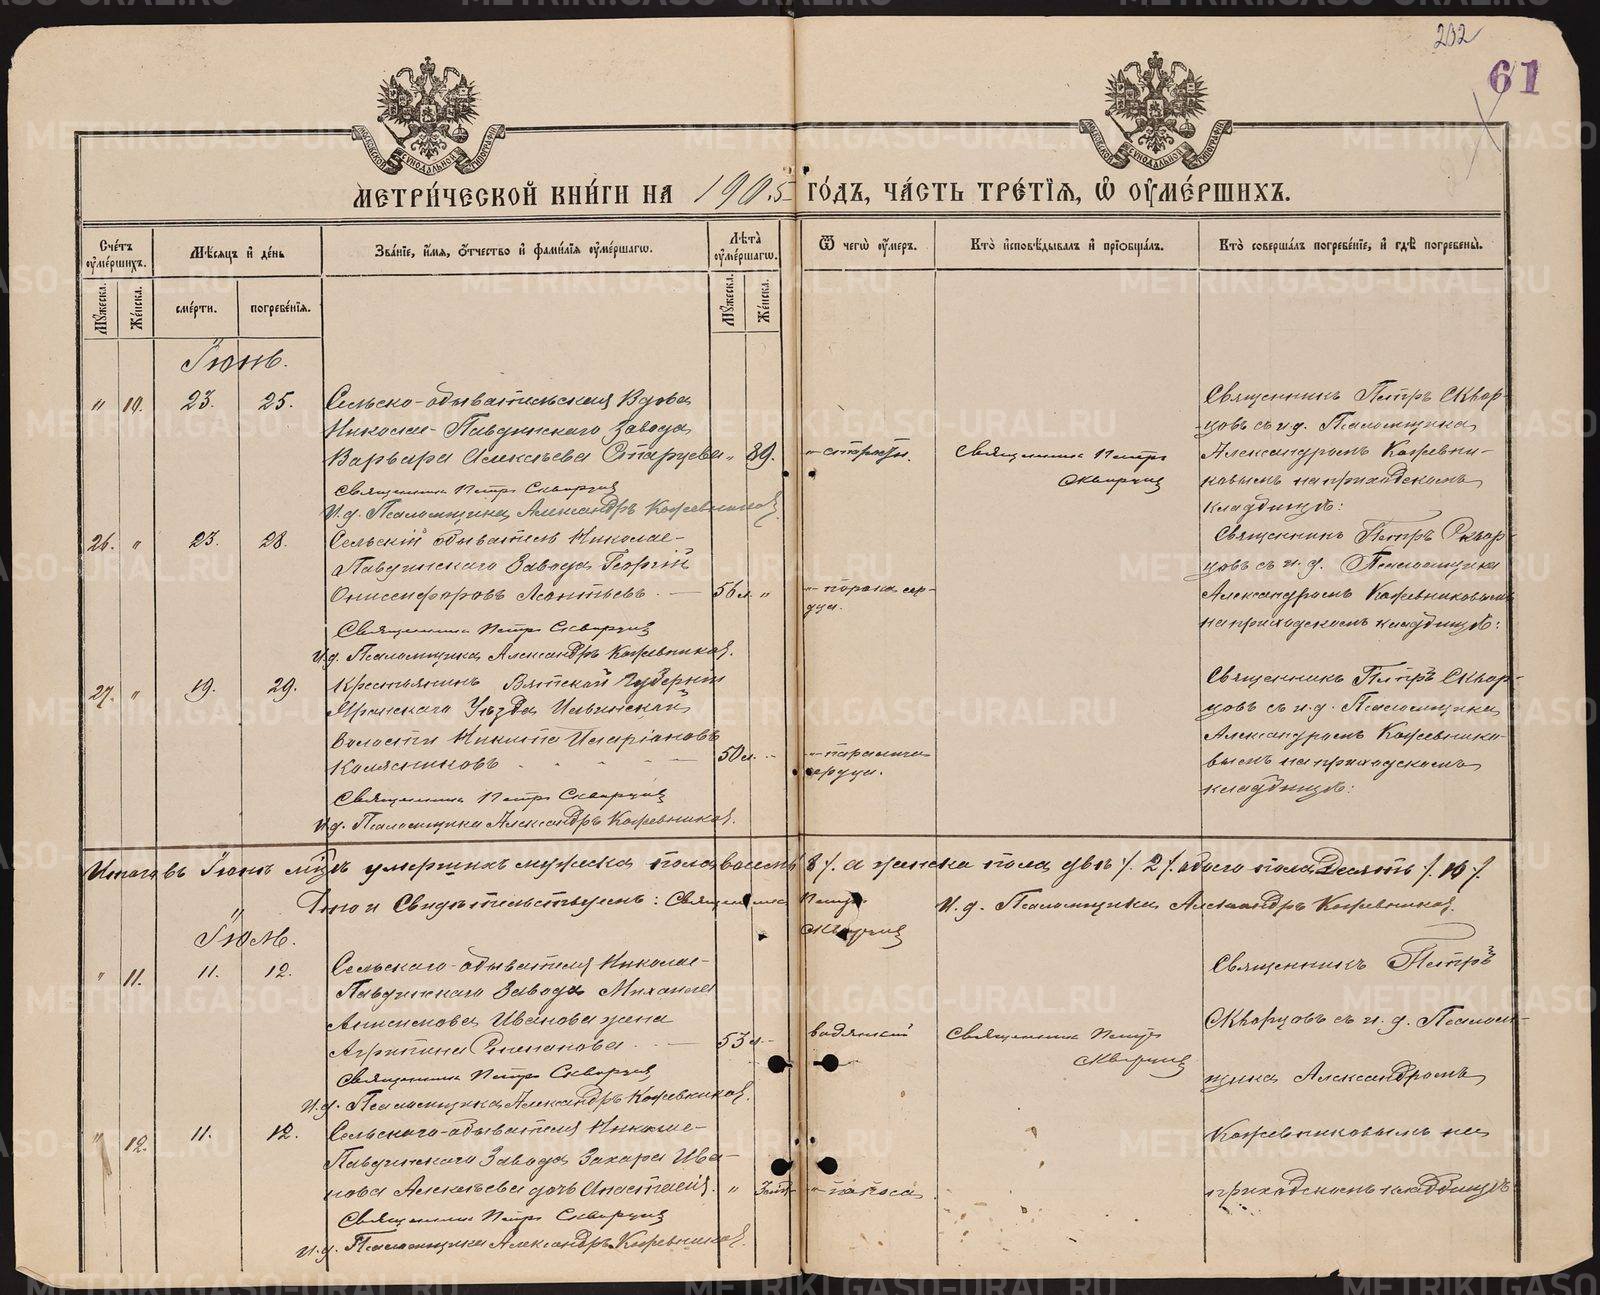 202
61
МЕТРИ́ЧЕСКОЙ КНИ́ГИ НА 1905 ГО́ДЪ, ЧА́СТЬ ТРЕ́ТІЯ, Ѿ ОУМЕ́РШИХЪ.
Сче́тъ оуме́ршихъ.
Мужеска.
Же́нска.
Мѣсяцъ и де́нь
сме́рти.
погребе́нія.
Зва́ніе, и́мя, о́тчество и фами́лія оуме́ршагѡ.
Лѣта̀ оуме́ршагѡ.
Мужеска.
Же́нска.
Ѿ чегѡ̀ оу́меръ.
Кто̀ исповѣ́дывалъ и пріобща́лъ.
Кто̀ соверша́лъ погребе́ніе, и гдѣ̀ погребены̀.
Іюнь.
" 10. 23. 25. Сельско-обывательская Вдова
Николае-Павдинскаго Завода
Варвара Алексѣева Старцева " 89.
Священникъ Петръ Скворцовъ
И.д. Псаломщика Александръ Кожевниковъ.
"старости.
Священникъ Петръ
Скворцовъ
Священникъ Петръ Сквор-
цовъ съ и.д. Псаломщика
Александромъ Кожевни-
ковымъ на приходскомъ
кладбищѣ:
26. " 23. 28. Сельскій обыватель Николае-
Павдинскаго Завода Георгій
Онисифоровъ Леонтьевъ. — 56 л. "
Священникъ Петръ Скворцовъ
И.д. Псаломщика Александръ Кожевниковъ.
"порока сер-
дца.
Священникъ Петръ Сквор-
цовъ съ и.д. Псаломщика
Александромъ Кожевниковымъ
на приходскомъ кладбищѣ:
27. " 19. 29. Крестьянинъ Вятской Губерніи
Яранскаго Уѣзда Ильинской
Волости Никита Иларіоновъ
Колясниковъ 50 л. "
Священникъ Петръ Скворцовъ
И.д. Псаломщика Александръ Кожевниковъ.
"паралича
сердца.
Священникъ Петръ Сквор-
цовъ съ и.д. Псаломщика
Александромъ Кожевнико-
вымъ на приходскомъ
кладбищѣ:
Итого въ Іюнѣ мцѣ умершихъ мужеска пола восемь /8/. а женска пола двѣ /2/. обоего пола Десять /10/.
Въ томъ и Свидѣтельствуемъ: Священникъ Петръ
Скворцовъ
И.д. Псаломщика Александръ Кожевниковъ.
Іюль.
" 11. 11. 12. Сельскаго-обывателя Николае-
Павдинскаго Завода Михаила
Анисимова Иванова жена
Агрипина Степанова. — 53 л.
Священникъ Петръ Скворцовъ
И.д. Псаломщика Александръ Кожевниковъ.
водянкой
Священникъ Петръ
Скворцовъ
Священникъ Петръ
Скворцовъ съ и.д. Псалом-
щика Александромъ
Кожевниковымъ на
приходскомъ кладбищѣ
" 12. 11. 12. Сельскаго-обывателя Николае-
Павдинскаго Завода Захара Ива-
нова Алексѣева дочь Анастасія. "
Священникъ Петръ Скворцовъ
И.д. Псаломщика Александръ Кожевниковъ.
"поноса